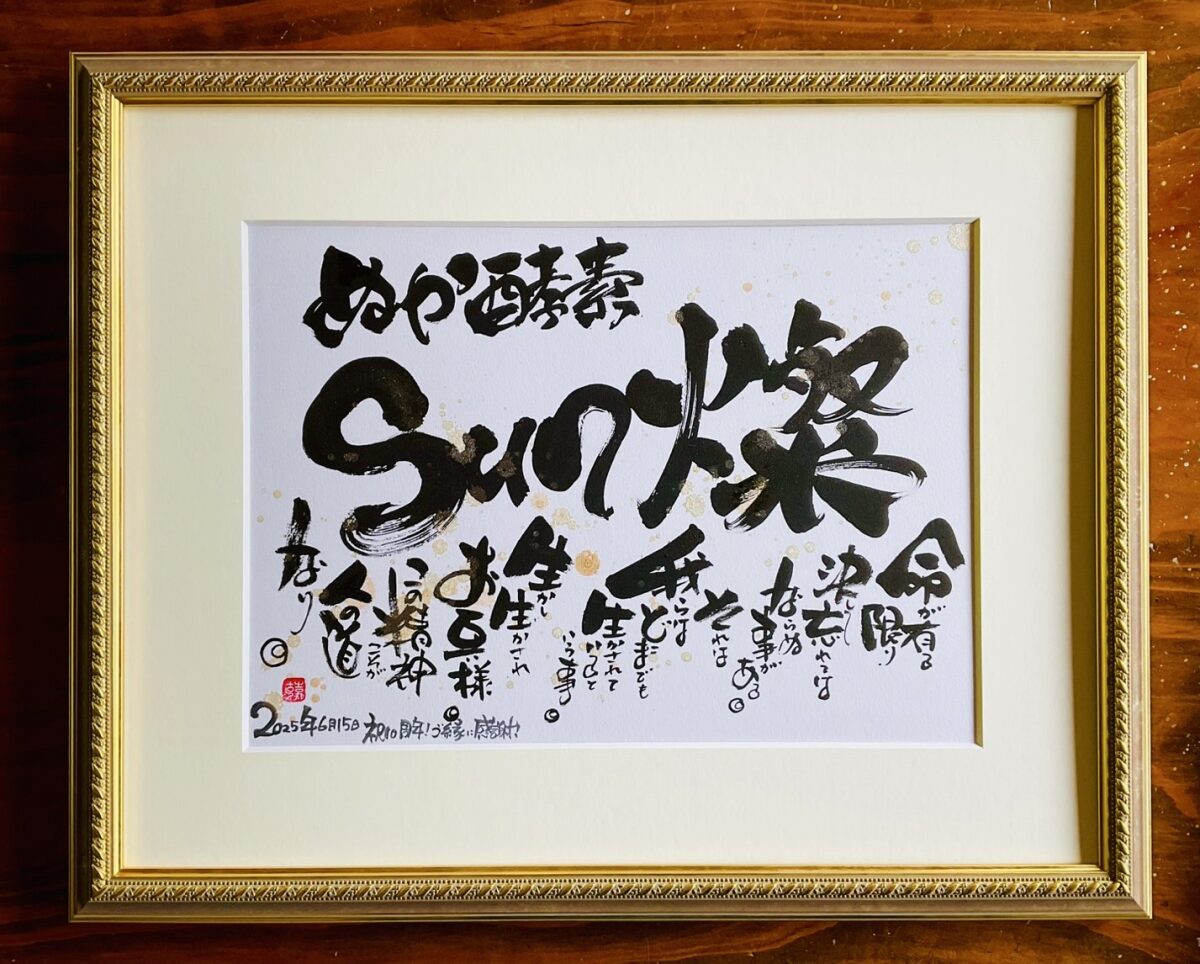 ぬか酵素
Sun燦
命が有る
限り
決して
忘れては
ならぬ
事が
ある。
それは
我らは
どこまでも
生かされて
いると
いう事。
生かし
生かされ
お互い様。
この精神
こそが
人の道
なり。
2025年6月15日 祝10周年!ご縁に感謝!